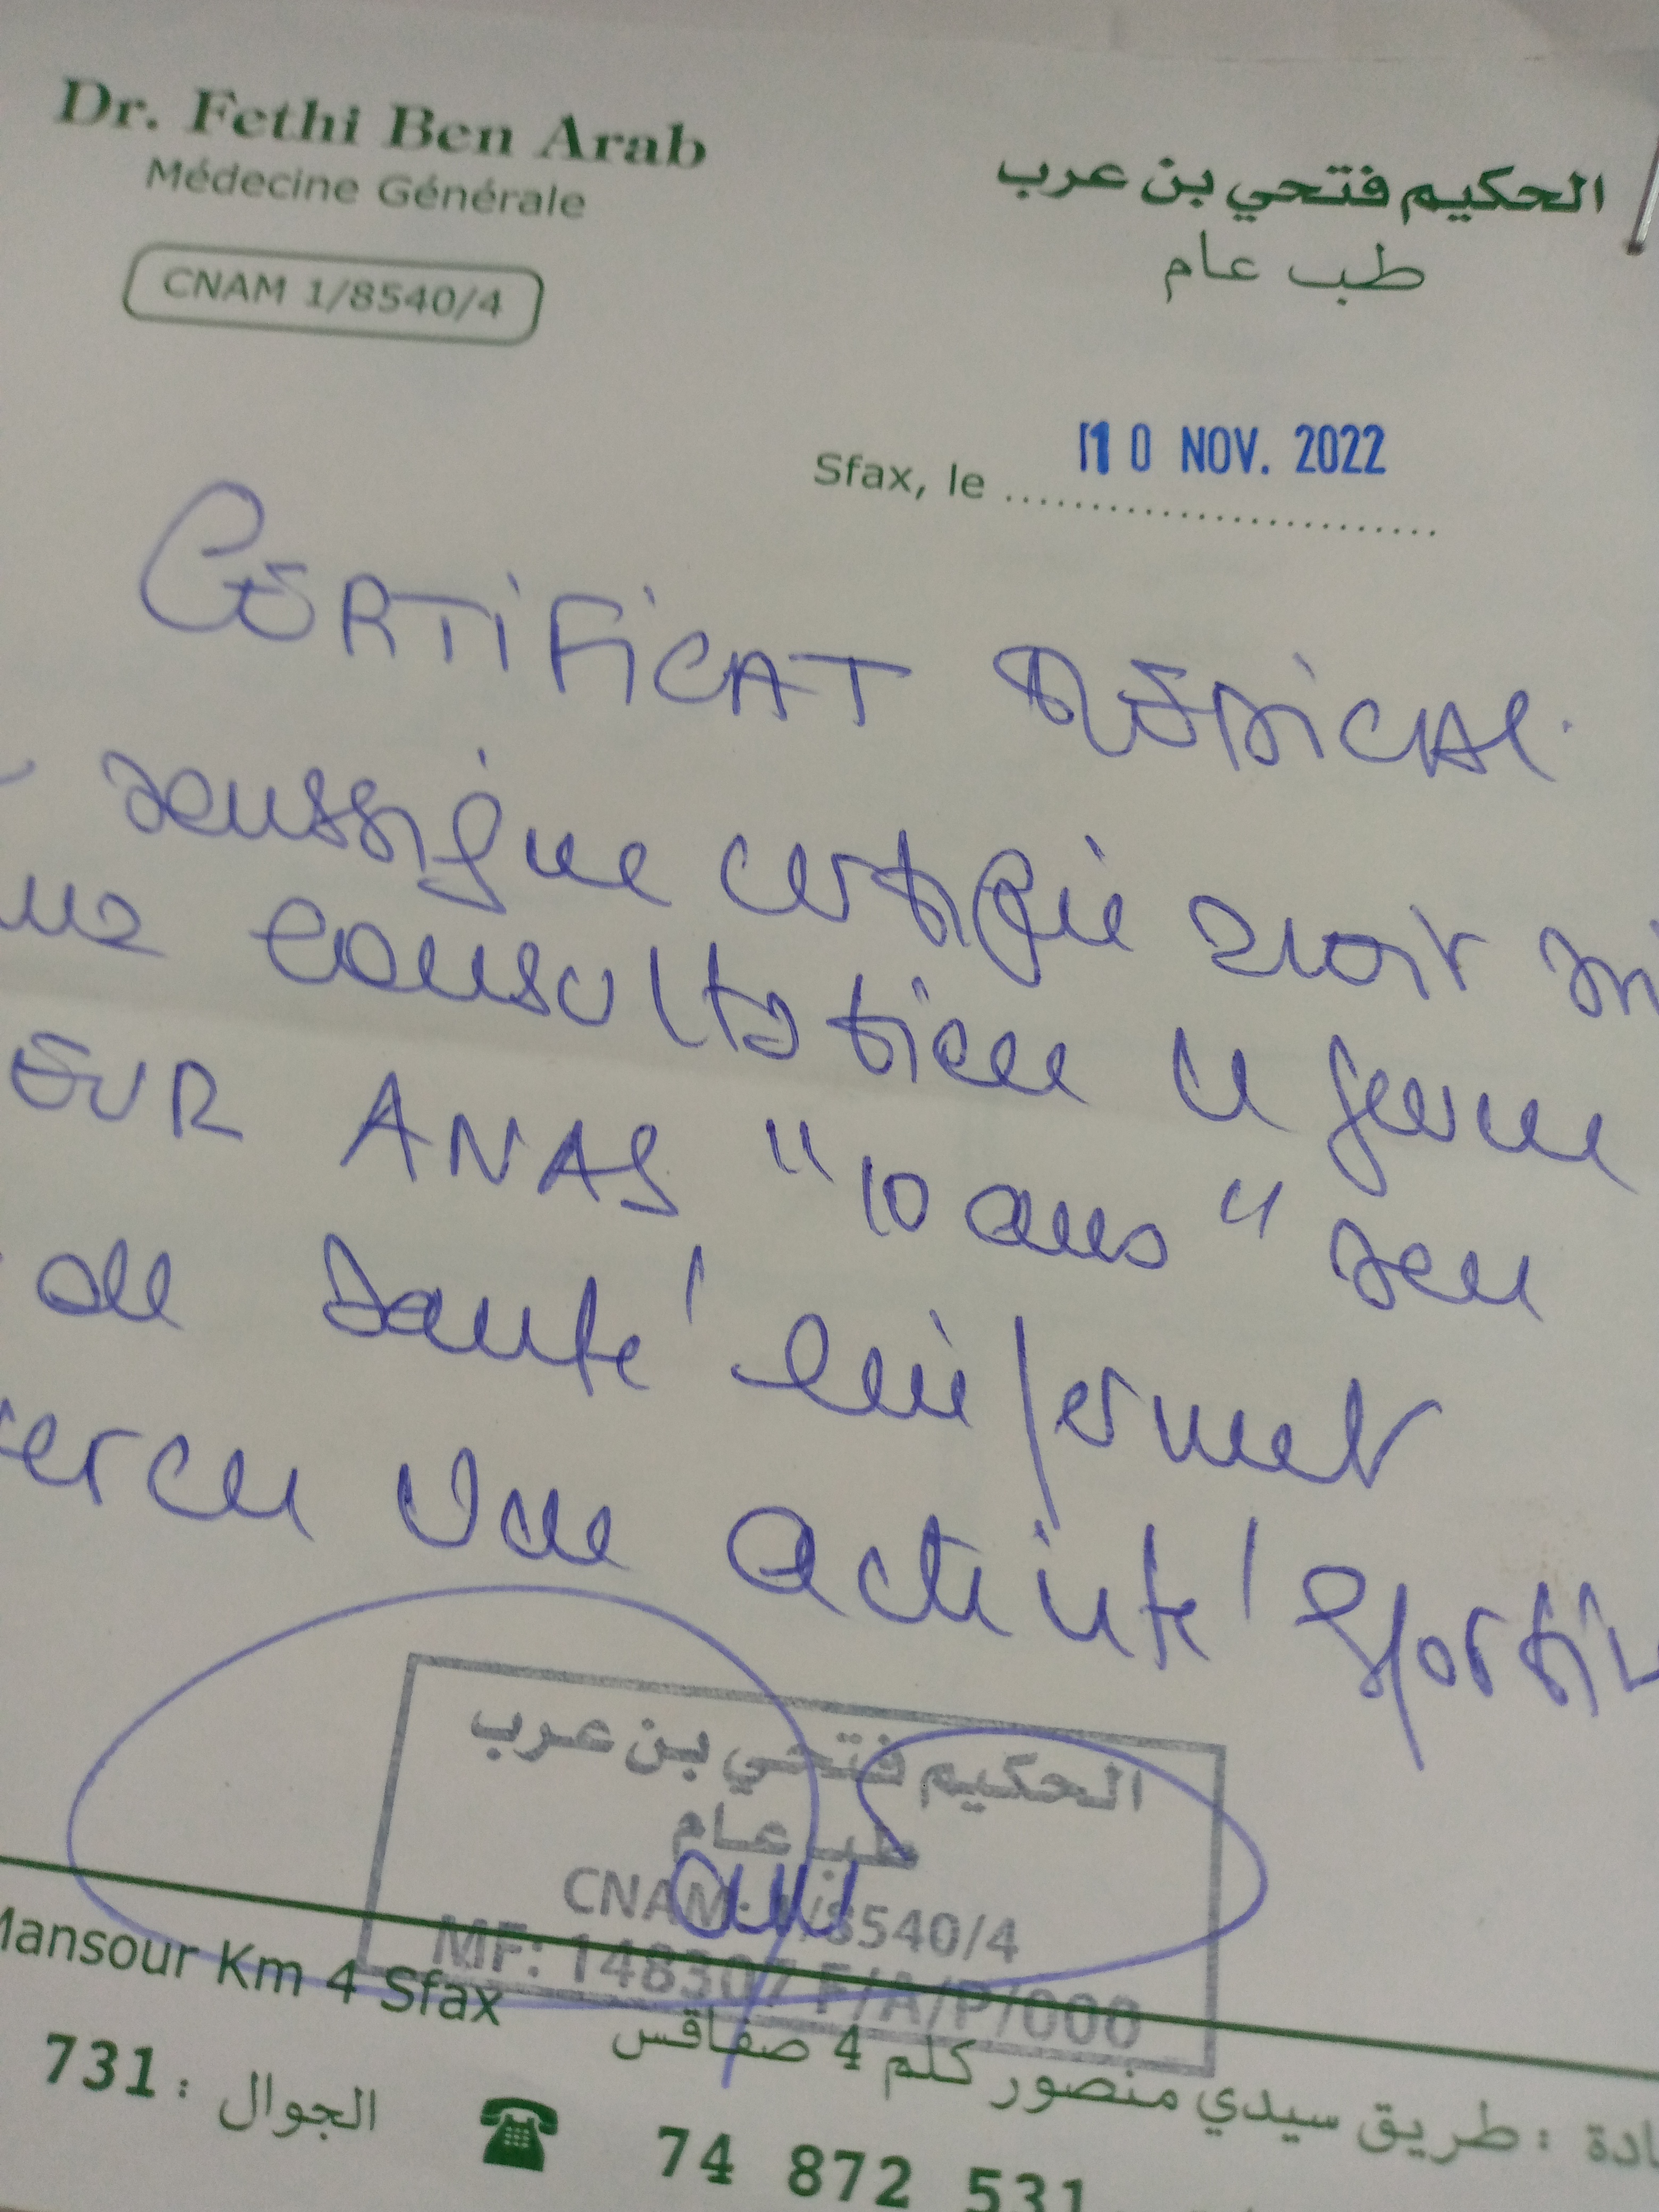 Dr. Fethi Ben Arab
Médecine Générale
CNAM 1/8540/4
الحكيم فتحي بن عرب
طب عام
Sfax, le 10 NOV. 2022
CERTIFICAT MÉDICAL
soussigné certifie avoir
consultation le jeune
EUR ANAS "10 ans" son
de santé lui permet
une activité sportiv
الحكيم فتحي بن عرب
طب عام
CNAM: 1/8540/4
MF: 148307 F/A/P/000
Mansour Km 4 Sfax
طريق سيدي منصور كلم 4 صفاقس
الجوال : 731
74 872 531